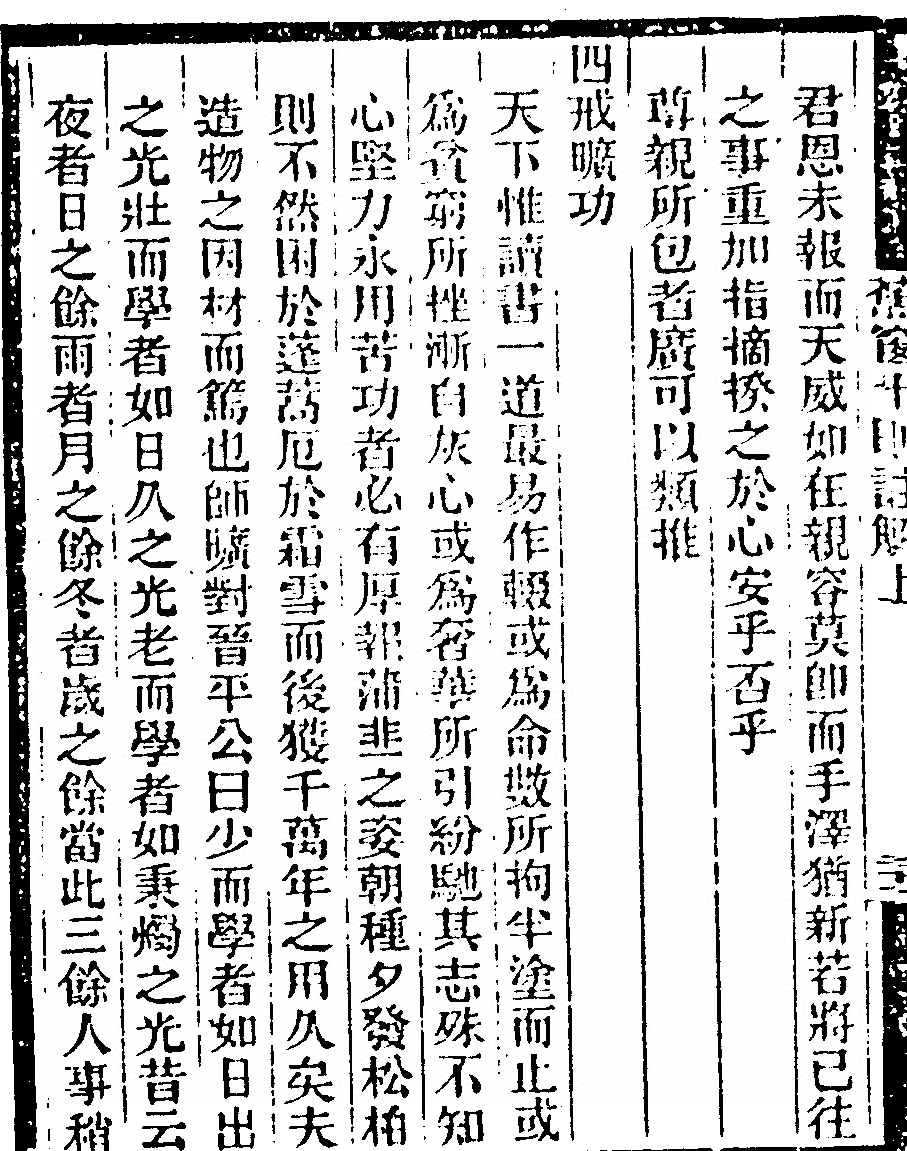 舊館十則註解上
君恩未報而天威如在親容莫卽而手澤猶新若將已往
之事重加指摘揆之於心安乎否乎
尊親所包者廣可以類推
四戒曠功
天下惟讀書一道最易作輟或爲命數所拘半塗而止或
爲貧窮所挫漸自灰心或爲奢華所引紛馳其志殊不知
心堅力永用苦功者必有厚報蒲韭之姿朝種夕發松柏
則不然困於蓬蒿厄於霜雪而後獲千萬年之用久矣夫
造物之因材而篤也師曠對晉平公曰少而學者如日出
之光壯而學者如日久之光老而學者如秉燭之光昔云
夜者日之餘雨者月之餘冬者歲之餘當此三餘人事稍